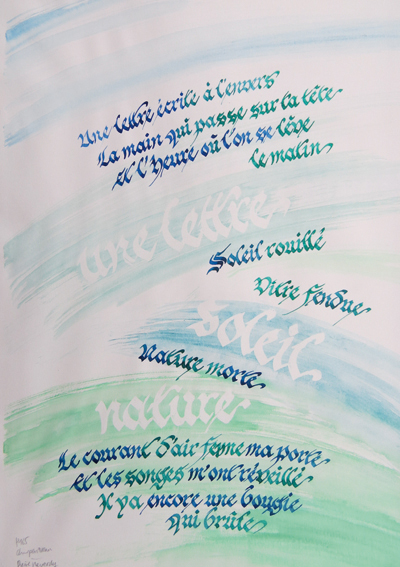 Une lettre écrite à l'envers
La main qui passe sur la tête
Et l'heure où l'on se lève
le matin
une lettre
Soleil rouillé
Vitre fendue
soleil
Nature morte
nature
Le courant d'air ferme ma porte
Et les songes m'ont réveillé
Il y a encore une bougie
qui brûle